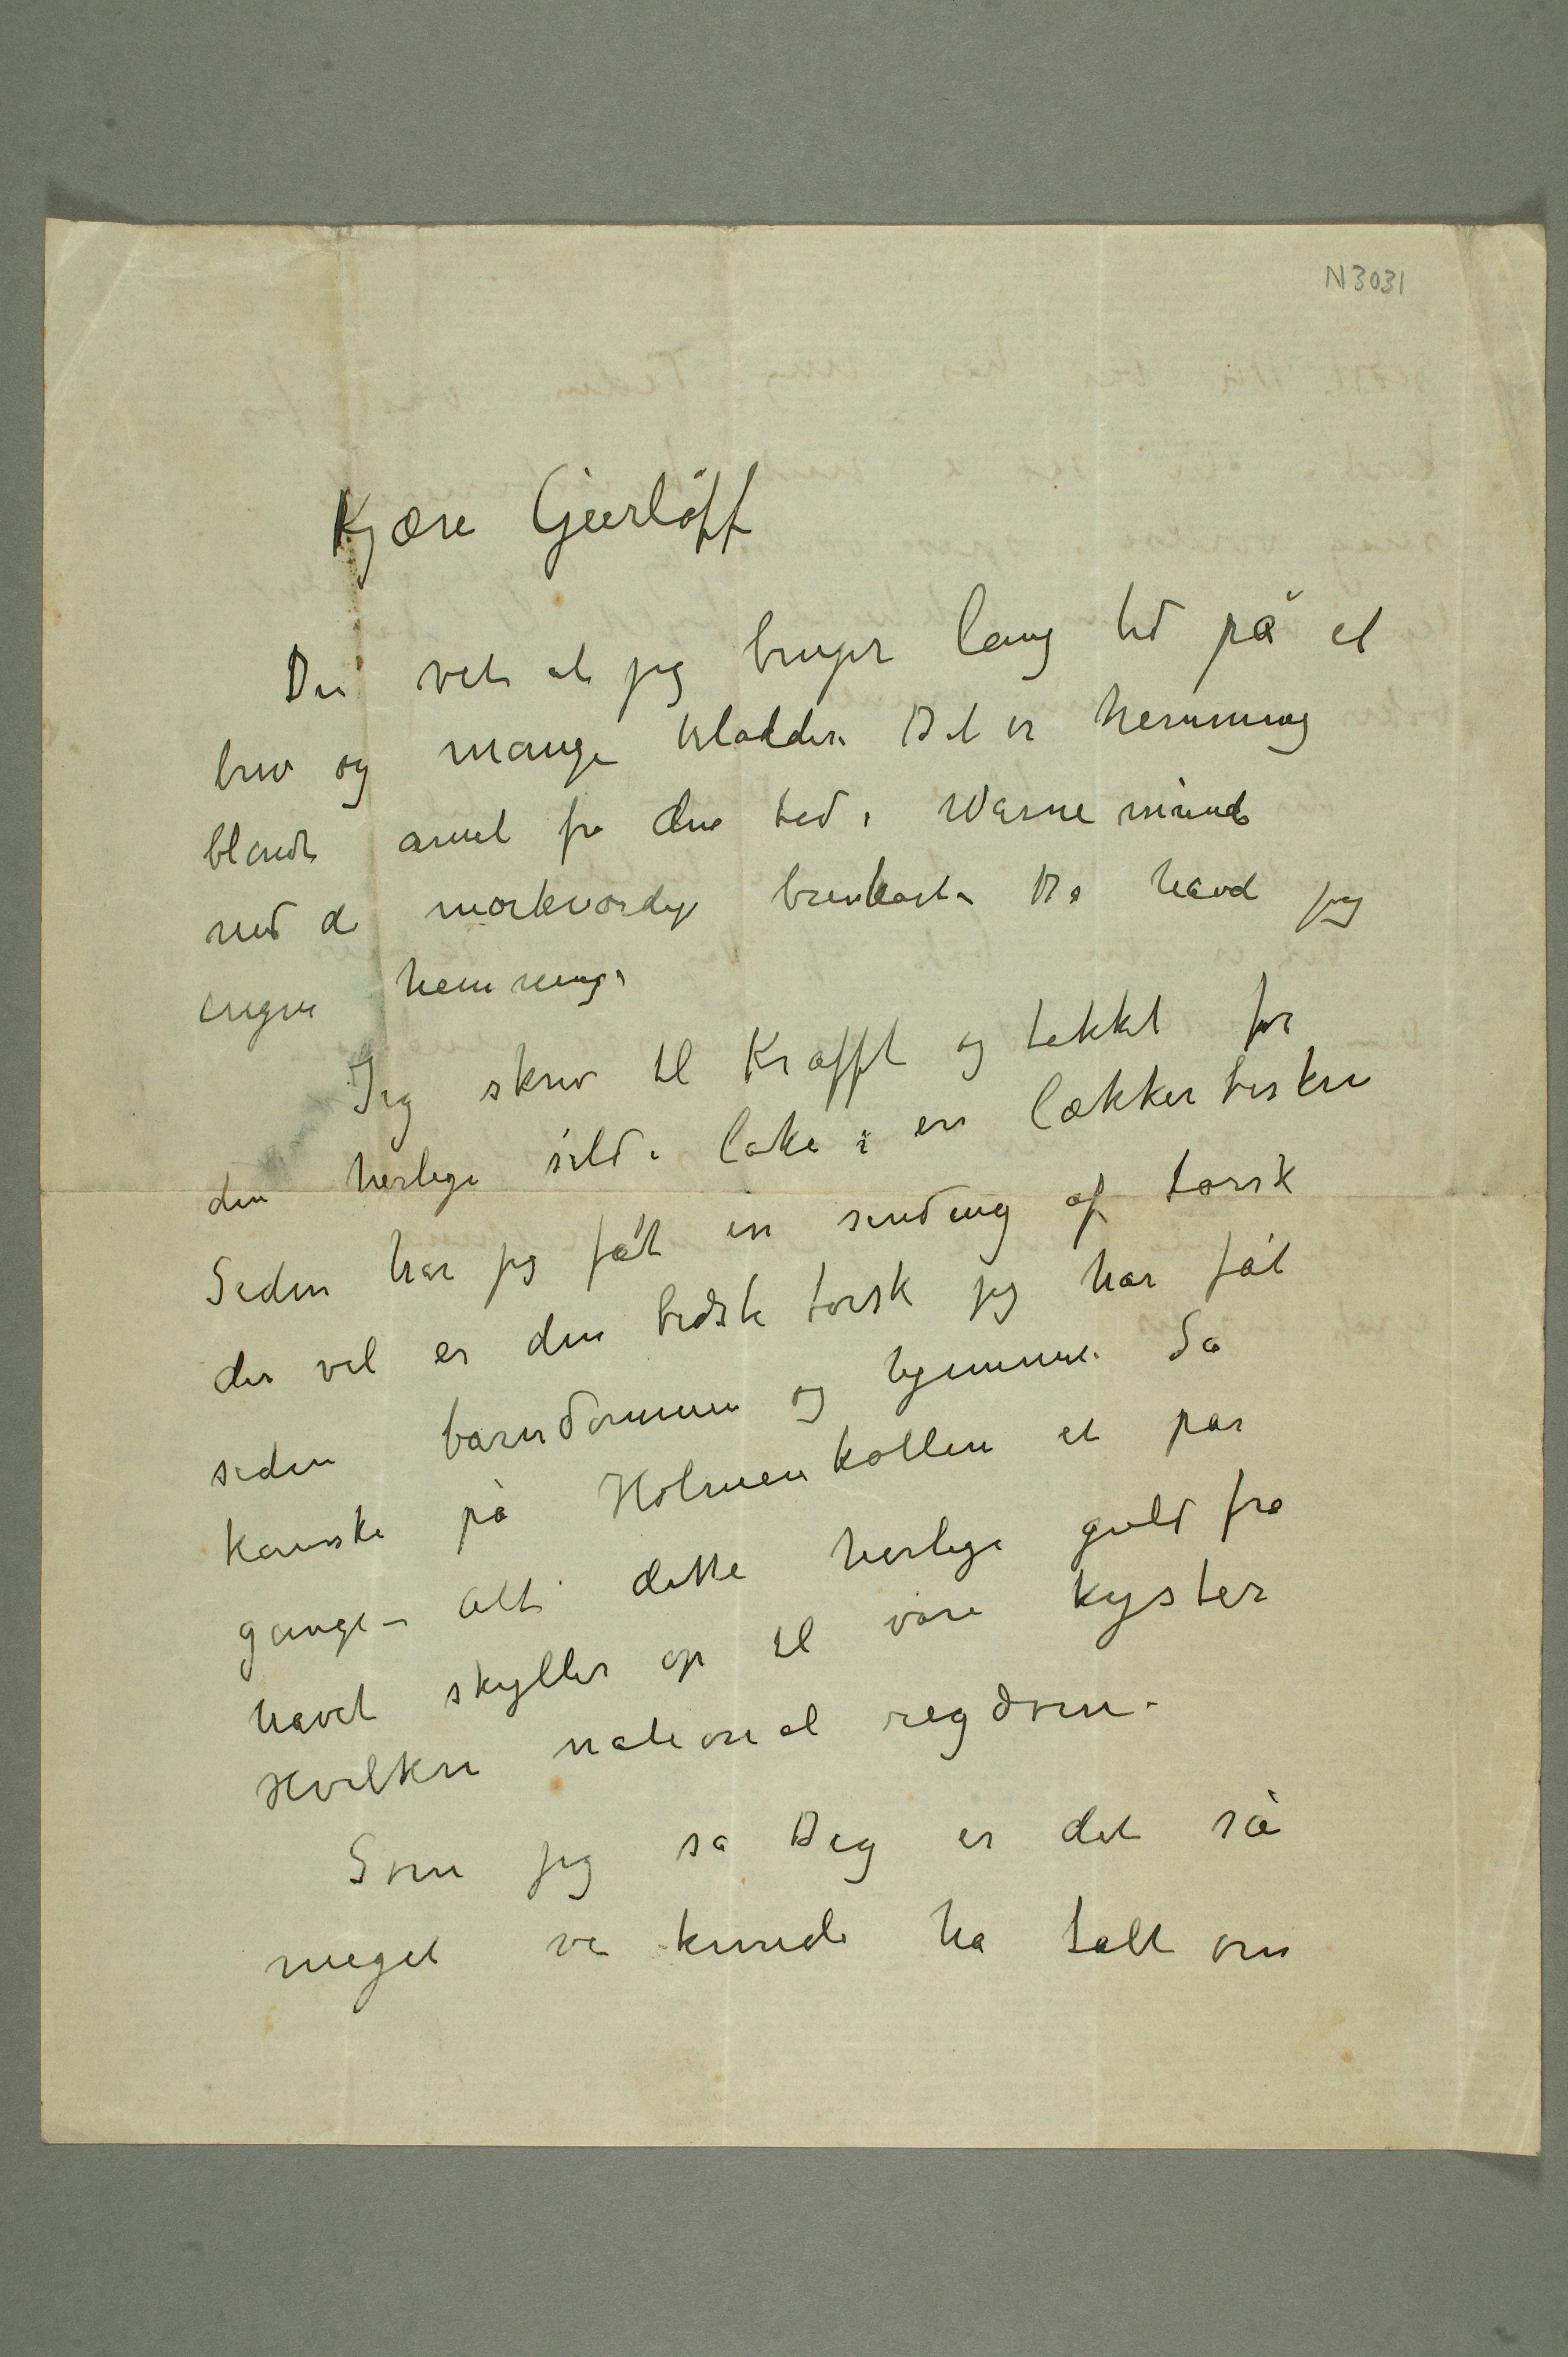 N3031
Kjære Gierløff
Du vet at jeg bruger lang tid på et
brev og mange kladder. Det er hemning
blandt annet fra den tid i Warnemünde
med de mærkværdige brevkort – Da havd jeg
ingen hemninger
Jeg skrev til Krafft og takket for
den herlige sild i lake i en lækker bisken
Siden har jeg fåt en sending af torsk
der vel er den bedste torsk jeg har fåt
siden barndommen og hjemme. Så
kanske på Holmenkollen et par
gange – Alt dette herlige guld fra
havet skyller op til våre kyster
Hvilken national rigdom –
Som jeg sa Dig er det så
meget vi kunde ha talt om